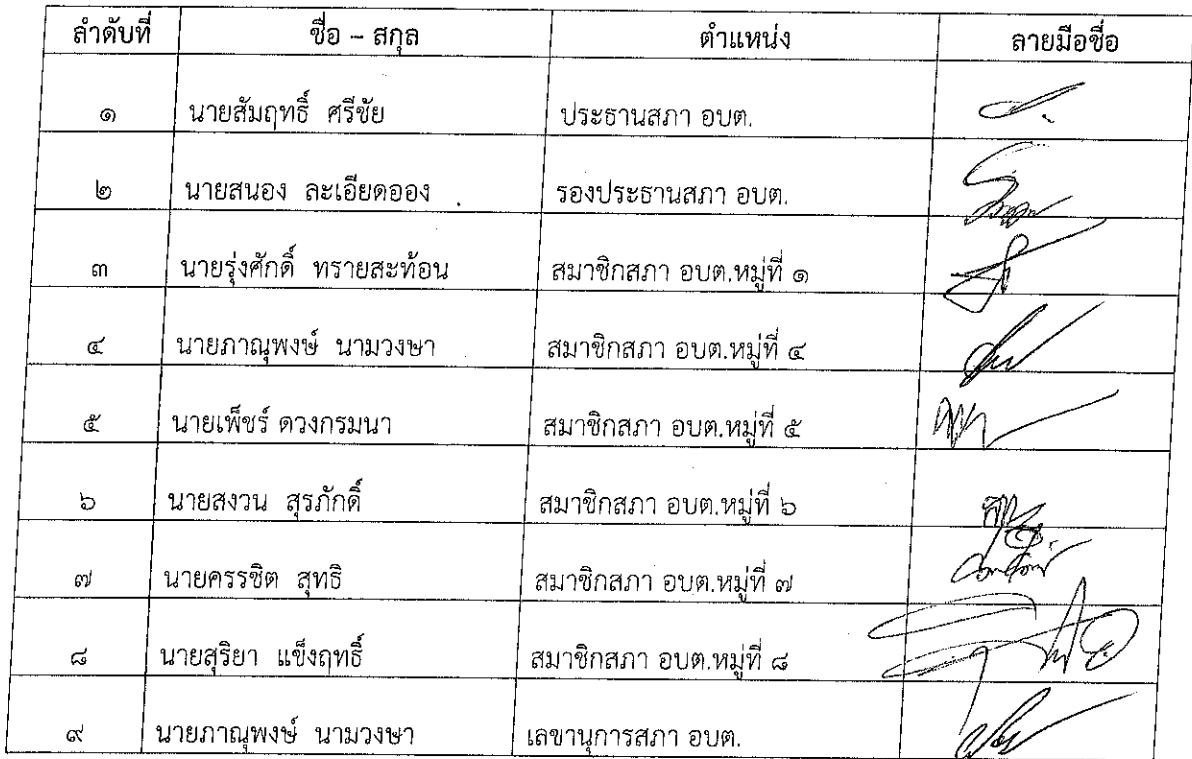 ลำดับที่ ชื่อ – สกุล ตำแหน่ง ลายมือชื่อ
๑ นายสัมฤทธิ์ ศรีชัย ประธานสภา อบต.
๒ นายสนอง ละเอียดออง รองประธานสภา อบต.
๓ นายรุ่งศักดิ์ ทรายสะท้อน สมาชิกสภา อบต.หมู่ที่ ๑
๔ นายภาณุพงษ์ นามวงษา สมาชิกสภา อบต.หมู่ที่ ๔
๕ นายเพ็ชร์ ดวงกรมนา สมาชิกสภา อบต.หมู่ที่ ๕
๖ นายสงวน สุรภักดิ์ สมาชิกสภา อบต.หมู่ที่ ๖
๗ นายครรชิต สุทธิ สมาชิกสภา อบต.หมู่ที่ ๗
๘ นายสุริยา แข็งฤทธิ์ สมาชิกสภา อบต.หมู่ที่ ๘
๙ นายภาณุพงษ์ นามวงษา เลขานุการสภา อบต.